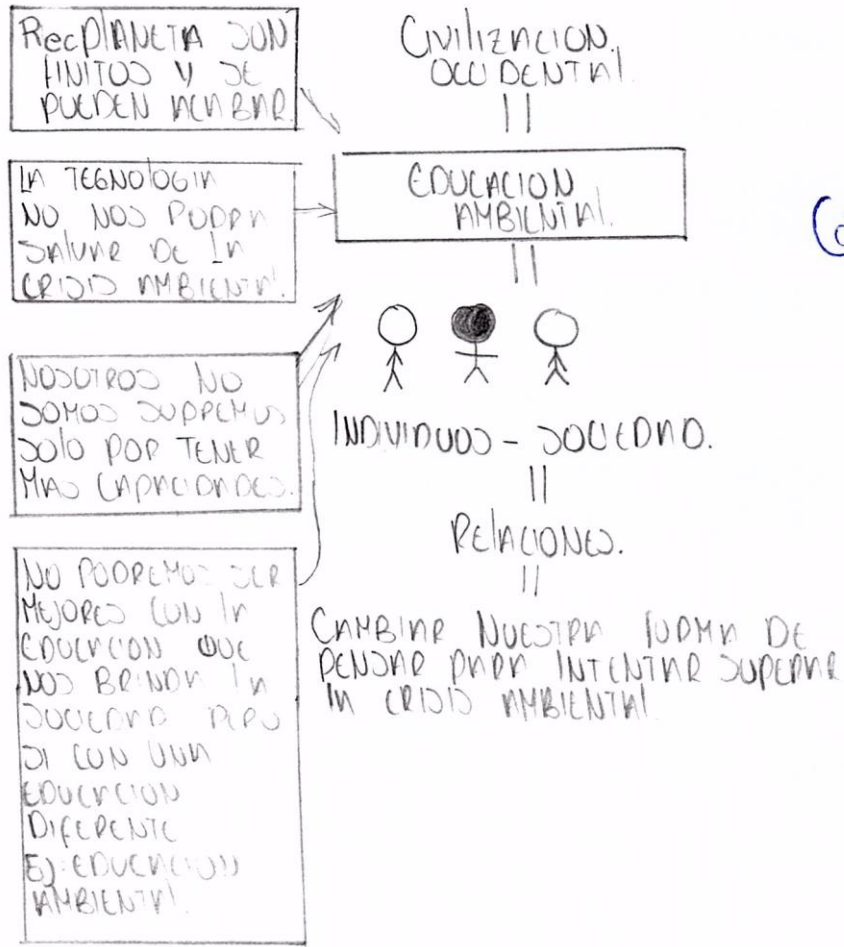 RecPlANETA SON
FINITOS Y SE
PUEDEN ACABAR.
LA TEGNOlOGIA
NO NOS PODRA
SAlVAR DE lA
CRISIS AMBIENTAl.
NOSOTROS NO
SOMOS SUPREMOS
SOlO POR TENER
MAS CAPACIDADES.
NO PODREMOS SER
MEJORES CON lA
EDUCACION QUE
NOS BRINDA lA
SOCIEDAD PERO
SI CON UNA
EDUCACION
DIFERENTE
EJ: EDUCACION
AMBIENTAl.
CIVIlIZACION
OCCIDENTAl.
EDUCACION
AMBIENTAl.
INDIVIDUOS - SOCIEDAD.
RElACIONES.
CAMBIAR NUESTRA FORMA DE
PENSAR PARA INTENTAR SUPERAR
lA CRISIS AMBIENTAl